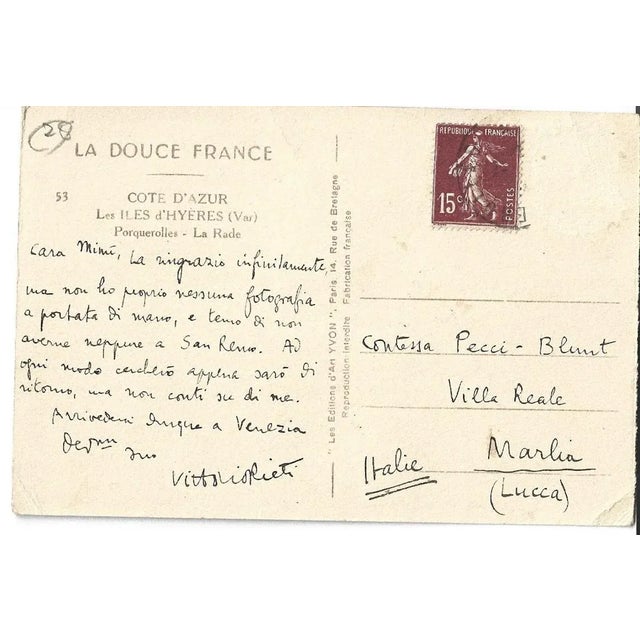 28
LA DOUCE FRANCE
53
COTE D'AZUR
Les ILES d'HYÈRES (Var)
Porquerolles - La Rade
Cara Mimì, La ringrazio infinitamente,
ma non ho proprio nessuna fotografia
a portata di mano, e temo di non
averne neppure a San Remo. Ad
ogni modo cercherò appena sarò di
ritorno, ma non conti su di me.
Arrivederci dunque a Venezia
suo
Vittorio Rieti
" Les Editions d'Art YVON ", Paris 14, Rue de Bretagne
Reproduction interdite Fabrication française
REPUBLIQUE FRANÇAISE
15 c
POSTES
Contessa Pecci-Blunt
Villa Reale
Marlia
Italie
(Lucca)